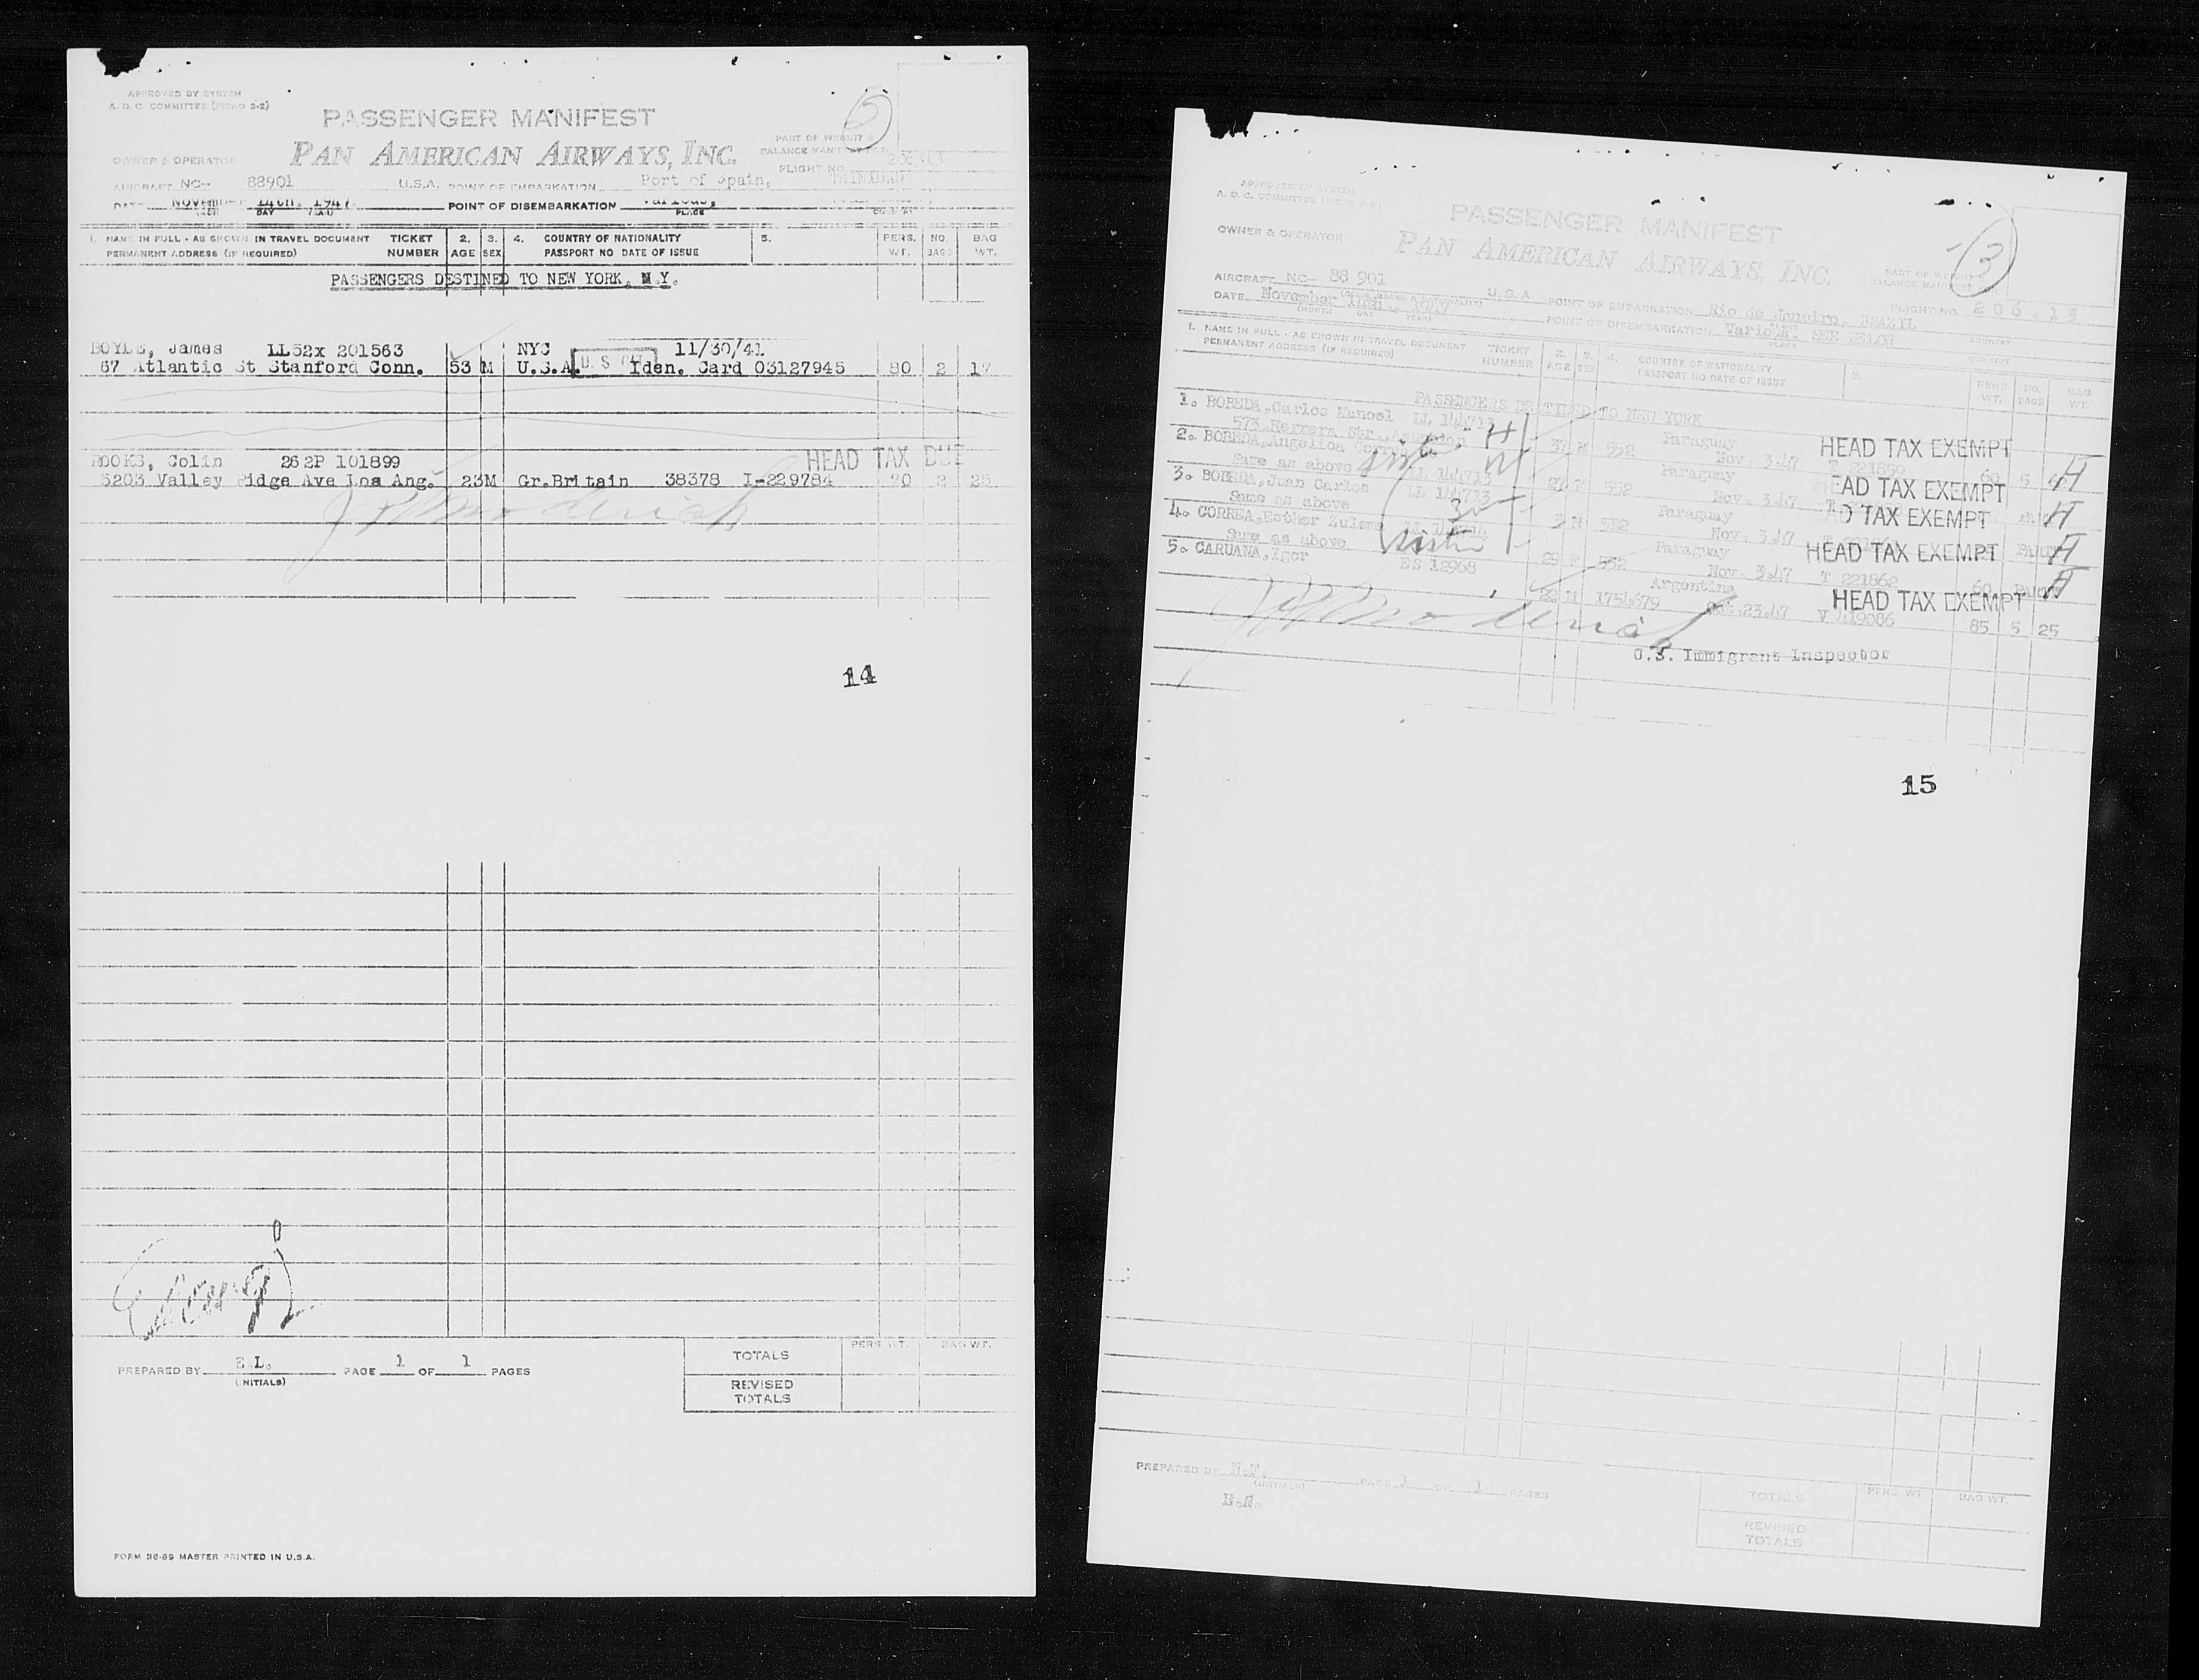 APPROVED BY SYSTEM
A. D. C. COMMITTEE (PICAO 3-2)
PASSENGER MANIFEST
5
PART OF WEIGHT &
OWNER & OPERATOR PAN AMERICAN AIRWAYS, INC.
BALANCE MANIFEST
FLIGHT NO.
AIRCRAFT NC- 88901 U.S.A. POINT OF EMBARKATION Port of Spain, TRINIDAD
DATE November 14th, 1947. POINT OF DISEMBARKATION Various,
DAY PLACE
1. NAME IN FULL - AS SHOWN IN TRAVEL DOCUMENT TICKET 2. 3. 4. COUNTRY OF NATIONALITY 5. PERS. NO. BAG
PERMANENT ADDRESS (IF REQUIRED) NUMBER AGE SEX PASSPORT NO DATE OF ISSUE WT. BAGS WT.
PASSENGERS DESTINED TO NEW YORK, N.Y.
BOYLE, James LL52x 201563 NYC 11/30/41
67 Atlantic St Stanford Conn. 53 M U.S.A. Iden. Card 03127945 80 2 17
ROOKS, Colin 262P 101899 HEAD TAX DUE
5203 Valley Ridge Ave Los Ang. 23M Gr.Britain 38378 I-229784 70 2 25
14
PREPARED BY E.L. PAGE 1 OF 1 PAGES
(INITIALS)
TOTALS PERS. WT. BAG WT.
REVISED
TOTALS
FORM 36-89 MASTER PRINTED IN U.S.A.
APPROVED BY SYSTEM
A. D. C. COMMITTEE (PICAO 3-2)
PASSENGER MANIFEST
3
OWNER & OPERATOR PAN AMERICAN AIRWAYS, INC.
PART OF WEIGHT
BALANCE MANIFEST
AIRCRAFT NC- 88 901 U.S.A. POINT OF EMBARKATION Rio de Janeiro, BRAZIL FLIGHT NO. 206.13
DATE November 14th 1947 POINT OF DISEMBARKATION Various, SEE BELOW
(MONTH DAY YEAR) PLACE COUNTRY
1. NAME IN FULL - AS SHOWN IN TRAVEL DOCUMENT TICKET 2. 3. 4. COUNTRY OF NATIONALITY 5. PERS. NO. BAG
PERMANENT ADDRESS (IF REQUIRED) NUMBER AGE SEX PASSPORT NO DATE OF ISSUE WT. BAGS WT.
PASSENGERS DESTINED TO NEW YORK
1. BOBEDA, Carlos Manoel LL 144713 Paraguay HEAD TAX EXEMPT
573 Herrera Str. H 37 M 552 Nov. 3.47 T 221859
2. BOBEDA, Angelica LL 144713 Paraguay HEAD TAX EXEMPT H
Same as above W 27 F 552 Nov. 3.47
3. BOBEDA, Juan Carlos LL 144713 Paraguay AD TAX EXEMPT H
Same as above 3 M 552 Nov. 3.47
4. CORREA, Esther Zulema Paraguay HEAD TAX EXEMPT H
Same as above sister 29 F 552 Nov. 3.47 T 221862 60
5. CARUANA, Igor ES 12968 Argentina HEAD TAX EXEMPT H
22 M 1754679 23.47 V 419086 85 5 25
U.S. Immigrant Inspector
15
PREPARED BY N.F. PAGE 1 OF 1 PAGES
(INITIALS)
TOTALS PERS WT. BAG WT.
REVISED
TOTALS